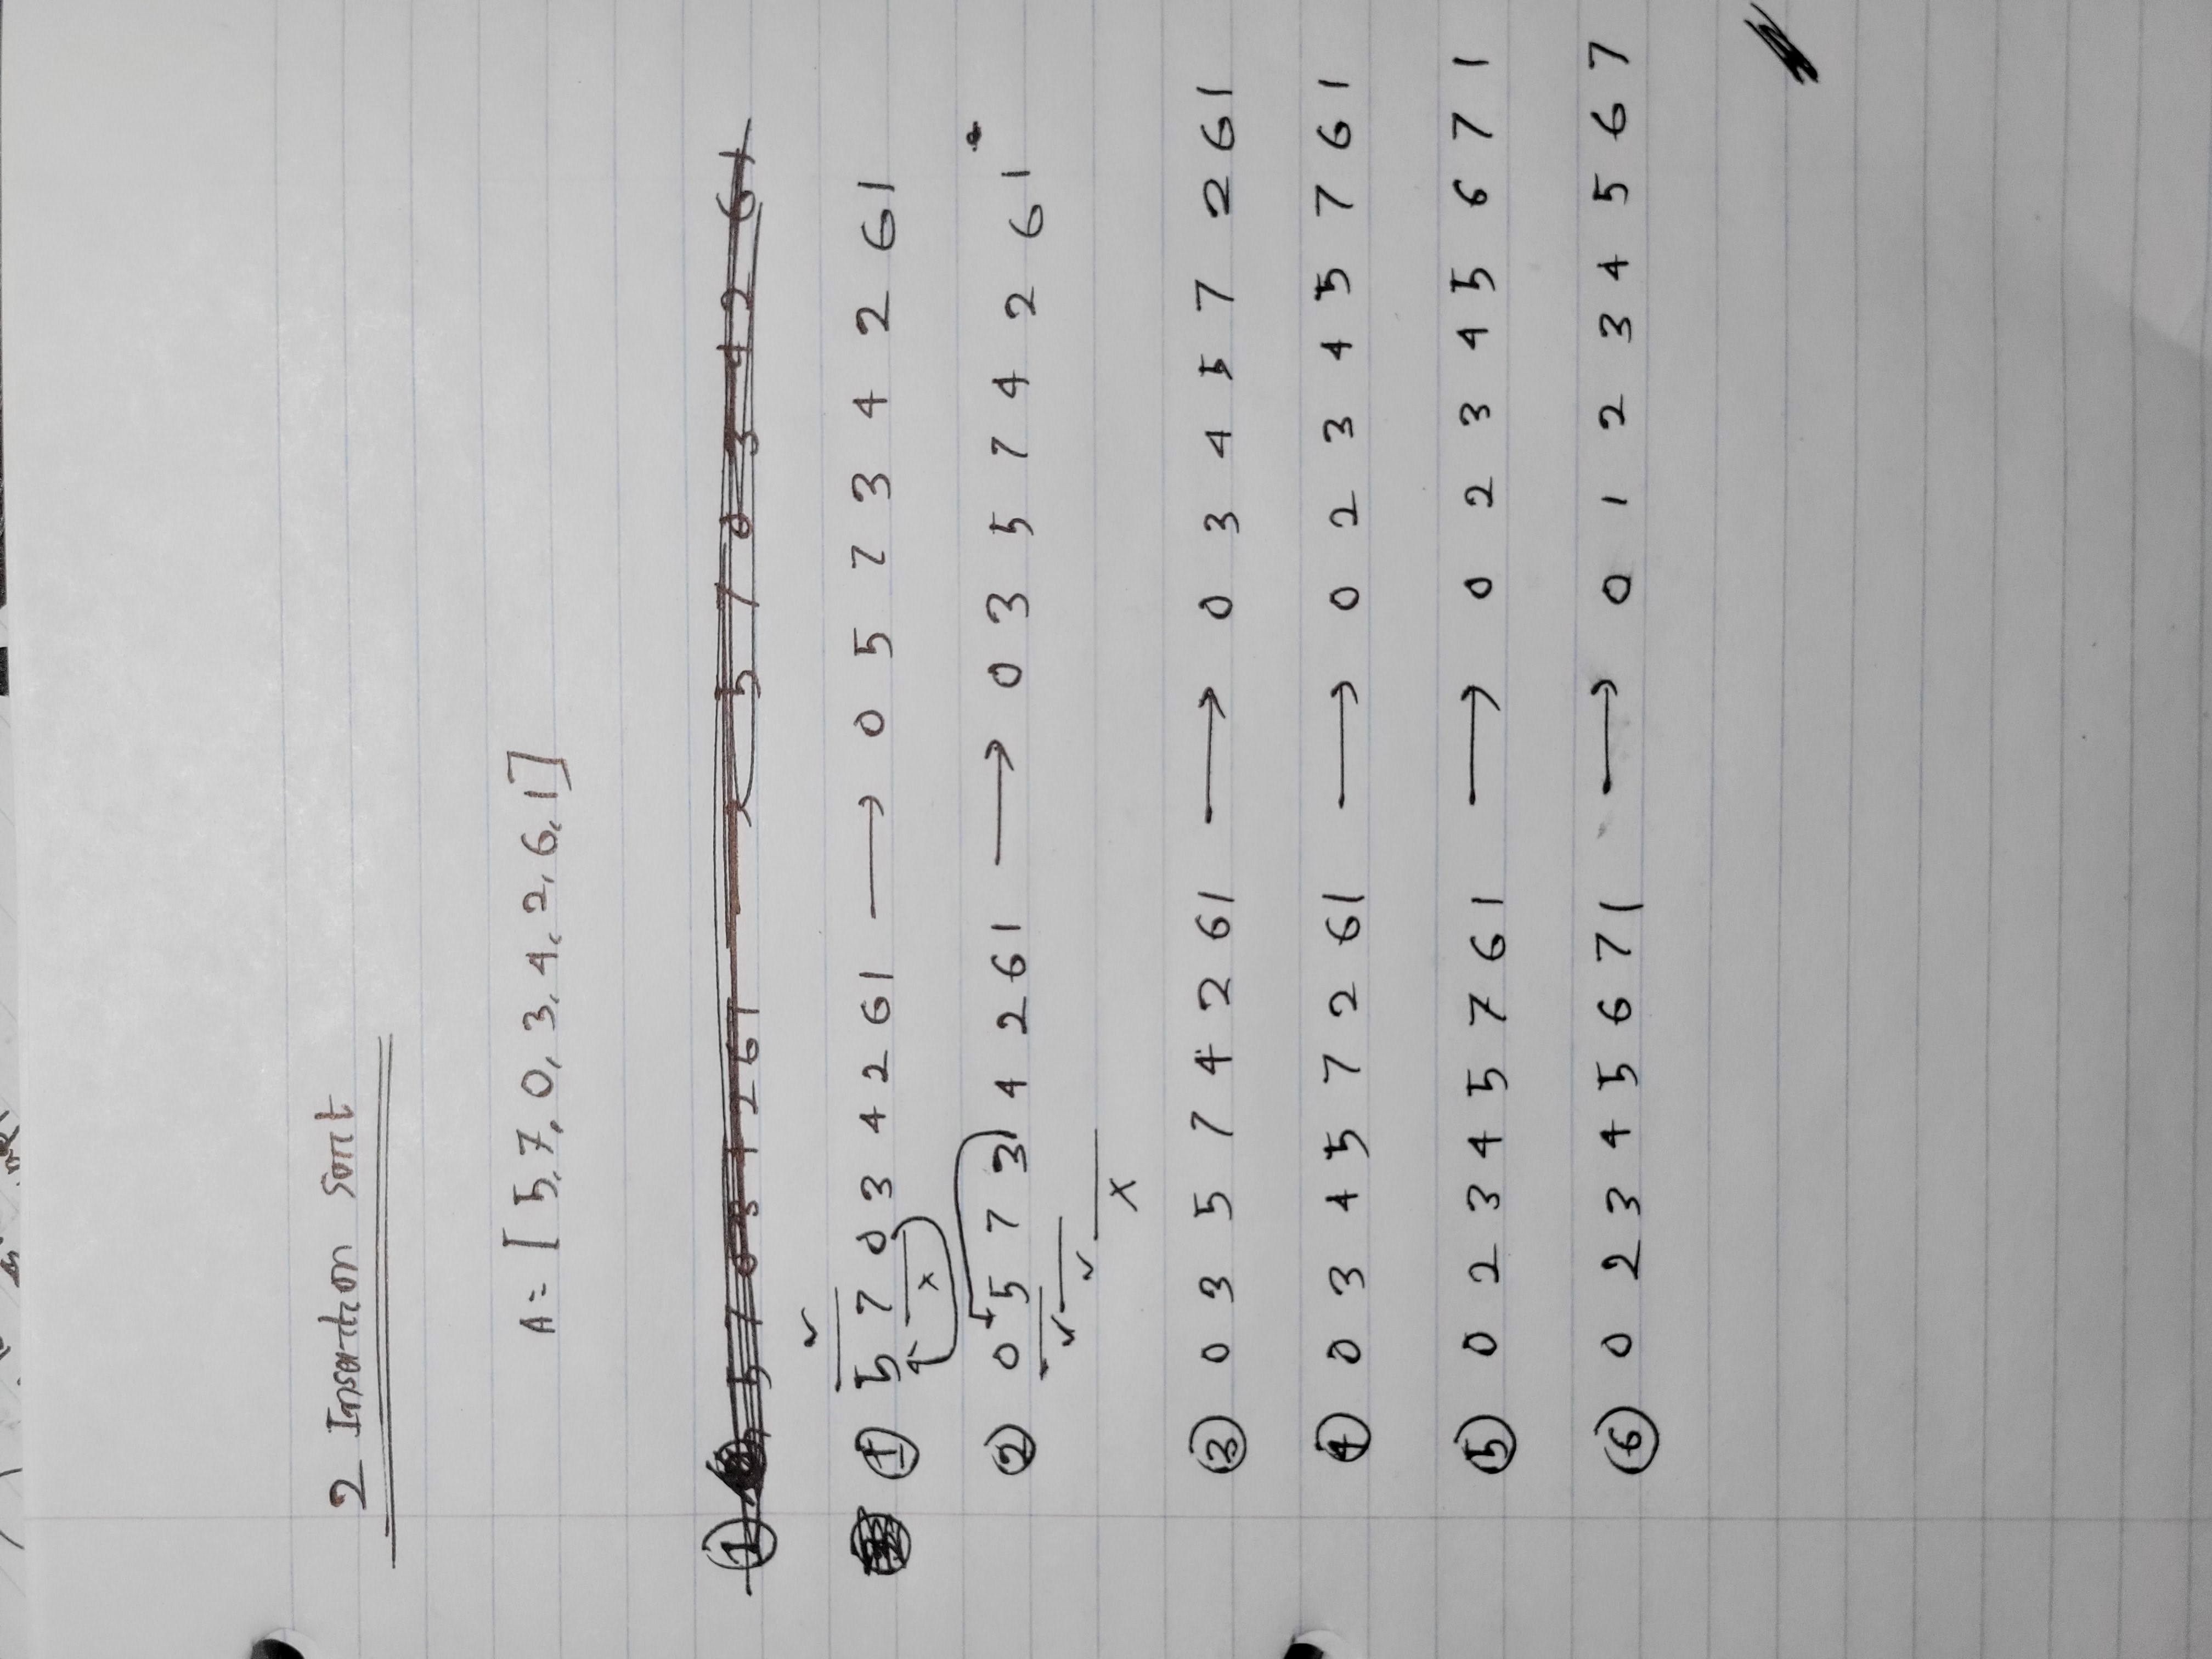 2 Insertion Sort
A = [ 5, 7, 0, 3, 4, 2, 6, 1 ]
① 5 7 0 3 4 2 6 1 5 7 0 3 4 2 6 1
✓
① 5 7 0 3 4 2 6 1 → 0 5 7 3 4 2 6 1
x
② 0 5 7 3 4 2 6 1 → 0 3 5 7 4 2 6 1
✓
✓
x
③ 0 3 5 7 4 2 6 1 → 0 3 4 5 7 2 6 1
④ 0 3 4 5 7 2 6 1 → 0 2 3 4 5 7 6 1
⑤ 0 2 3 4 5 7 6 1 → 0 2 3 4 5 6 7 1
⑥ 0 2 3 4 5 6 7 1 → 0 1 2 3 4 5 6 7